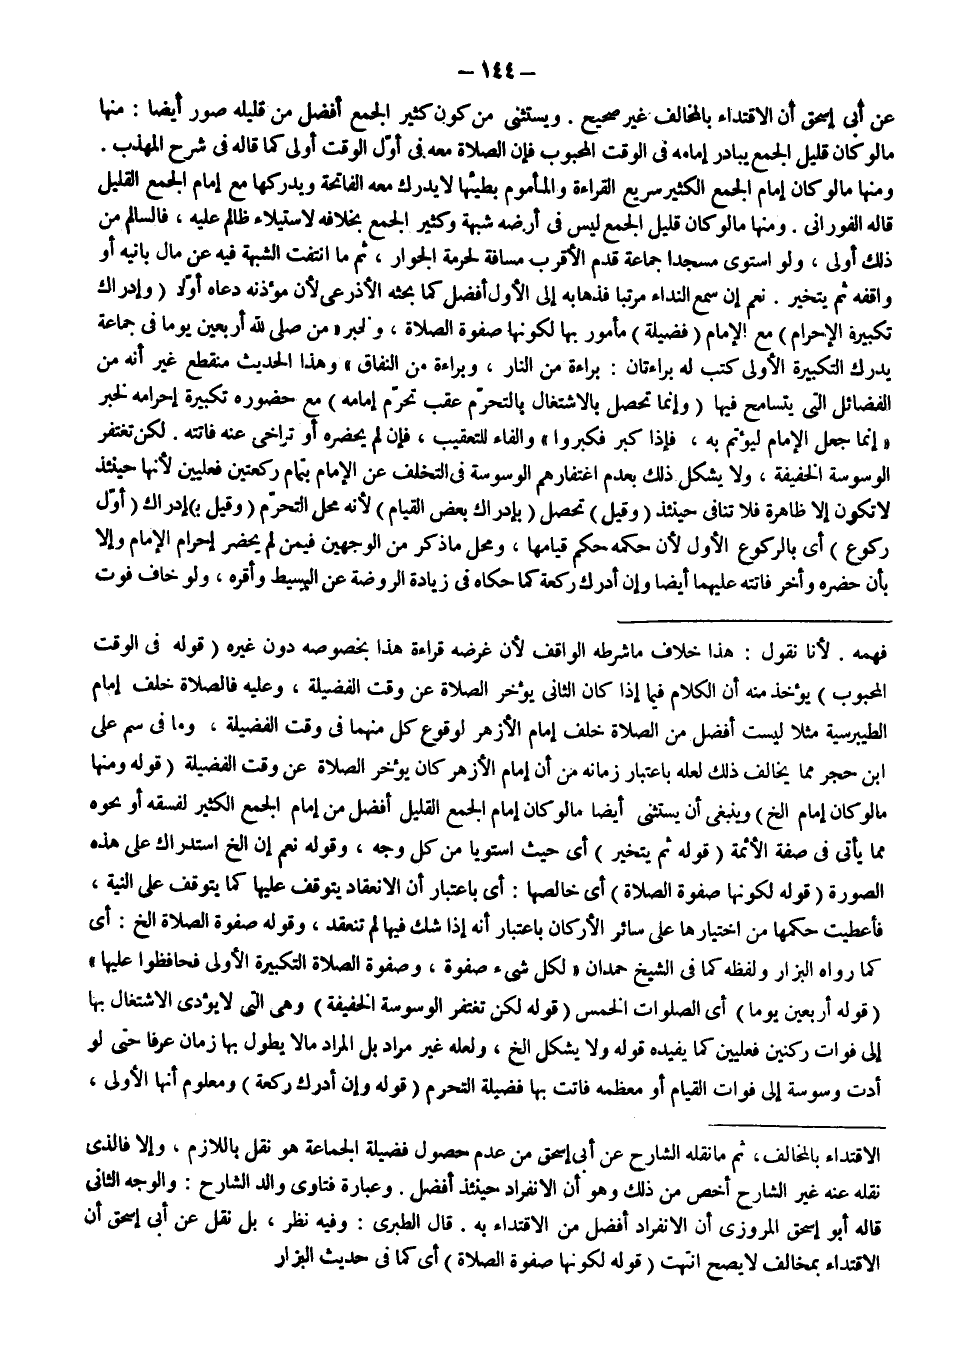 – ١٤٤ –
عن أبى إسحق أن الاقتداء بالمخالف غير صحيح . ويستثنى من كون كثير الجمع أفضل من قليله صور أيضا : منها
مالوكان قليل الجمع يبادر إمامه فى الوقت المحبوب فإن الصلاة معه فى أوّل الوقت أولى كما قاله فى شرح المهذب .
ومنها مالوكان إمام الجمع الكثير سريع القراءة والمأموم بطيئها لايدرك معه الفاتحة ويدركها مع إمام الجمع القليل
قاله الفورانى . ومنها مالوكان قليل الجمع ليس فى أرضه شبهة وكثير الجمع بخلافه لاستيلاء ظالم عليه ، فالسالم من
ذلك أولى ، ولو استوى مسجدا جماعة قدم الأقرب مسافة لحرمة الجوار ، ثم ما انتفت الشبهة فيه عن مال بانيه أو
واقفه ثم يتخير . نعم إن سمع النداء مرتبا فذهابه إلى الأول أفضل كما بحثه الأذرعى لأن مؤذنه دعاه أوّلا ( وإدراك
تكبيرة الإحرام ) مع الإمام ( فضيلة ) مأمور بها لكونها صفوة الصلاة ، ولخبر « من صلى لله أربعين يوما فى جماعة
يدرك التكبيرة الأولى كتب له براءتان : براءة من النار ، وبراءة من النفاق » وهذا الحديث منقطع غير أنه من
الفضائل التى يتسامح فيها ( وإنما تحصل بالاشتغال بالتحرّم عقب تحرّم إمامه ) مع حضوره تكبيرة إحرامه لخبر
« إنما جعل الإمام ليؤتم به ، فإذا كبر فكبروا » والفاء للتعقيب ، فإن لم يحضره أو تراخى عنه فاتته . لكن تغتفر
الوسوسة الخفيفة ، ولا يشكل ذلك بعدم اغتفارهم الوسوسة فى التخلف عن الإمام بتمام ركعتين فعليين لأنها حينئذ
لاتكون إلا ظاهرة فلا تنافى حينئذ ( وقيل ) تحصل ( بإدراك بعض القيام ) لأنه محل التحرّم ( وقيل ب)إدراك ( أوّل
ركوع ) أى بالركوع الأول لأن حكمه حكم قيامها ، ومحل ماذكر من الوجهين فيمن لم يحضر إحرام الإمام وإلا
بأن حضره وأخر فاتته عليهما أيضا وإن أدرك ركعة كما حكاه فى زيادة الروضة عن البسيط وأقره ، ولو خاف فوت
فهمه . لأنا نقول : هذا خلاف ماشرطه الواقف لأن غرضه قراءة هذا بخصوصه دون غيره ( قوله فى الوقت
المحبوب ) يؤخذ منه أن الكلام فيما إذا كان الثانى يؤخر الصلاة عن وقت الفضيلة ، وعليه فالصلاة خلف إمام
الطيبرسية مثلا ليست أفضل من الصلاة خلف إمام الأزهر لوقوع كل منهما فى وقت الفضيلة ، وما فى سم على
ابن حجر مما يخالف ذلك لعله باعتبار زمانه من أن إمام الأزهر كان يؤخر الصلاة عن وقت الفضيلة ( قوله ومنها
مالوكان إمام الخ ) وينبغى أن يستثنى أيضا مالوكان إمام الجمع القليل أفضل من إمام الجمع الكثير لفسقه أو نحوه
مما يأتى فى صفة الأئمة ( قوله ثم يتخير ) أى حيث استويا من كل وجه ، وقوله نعم إن الخ استدراك على هذه
الصورة ( قوله لكونها صفوة الصلاة ) أى خالصها : أى باعتبار أن الانعقاد يتوقف عليها كما يتوقف على النية ،
فأعطيت حكمها من اختيارها على سائر الأركان باعتبار أنه إذا شك فيها لم تنعقد ، وقوله صفوة الصلاة الخ : أى
كما رواه البزار ولفظه كما فى الشيخ حمدان « لكل شىء صفوة ، وصفوة الصلاة التكبيرة الأولى فحافظوا عليها »
( قوله أربعين يوما ) أى الصلوات الخمس ( قوله لكن تغتفر الوسوسة الخفيفة ) وهى التى لايؤدى الاشتغال بها
إلى فوات ركنين فعليين كما يفيده قوله ولا يشكل الخ ، ولعله غير مراد بل المراد مالا يطول بها زمان عرفا حتى لو
أدت وسوسة إلى فوات القيام أو معظمه فاتت بها فضيلة التحرم ( قوله وإن أدرك ركعة ) ومعلوم أنها الأولى ،
الاقتداء بالمخالف، ثم مانقله الشارح عن أبى إسحق من عدم حصول فضيلة الجماعة هو نقل باللازم ، وإلا فالذى
نقله عنه غير الشارح أخص من ذلك وهو أن الانفراد حينئذ أفضل . وعبارة فتاوى والد الشارح : والوجه الثانى
قاله أبو إسحق المروزى أن الانفراد أفضل من الاقتداء به . قال الطبرى : وفيه نظر ، بل نقل عن أبى إسحق أن
الاقتداء بمخالف لايصح انتهت ( قوله لكونها صفوة الصلاة ) أى كما فى حديث البزار